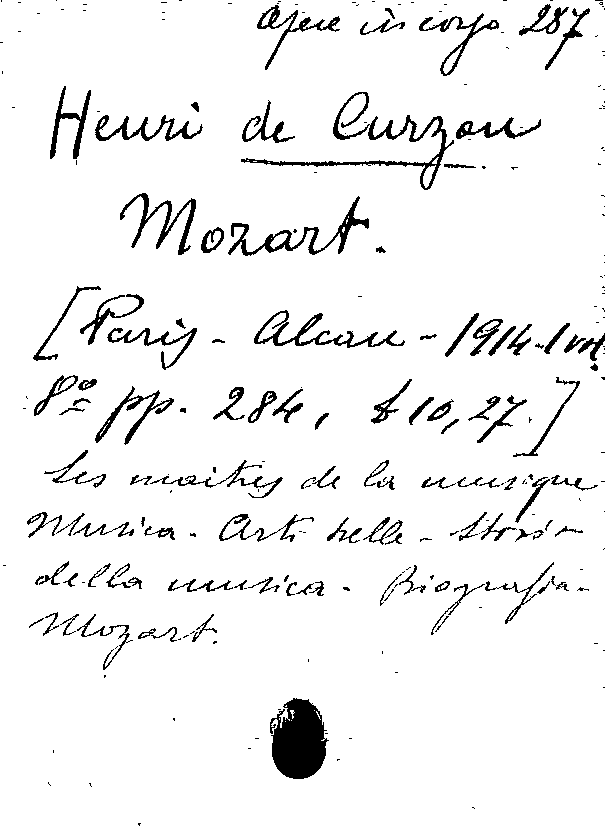 Opere in corso 287
Henri de Curzon
Mozart.
[Paris - Alcan - 1914. 1 vol.
8º pp. 284, £ 10,27.]
Les maitres de la musique
Musica - Arti belle - Storia
della musica - Biografia -
Mozart.